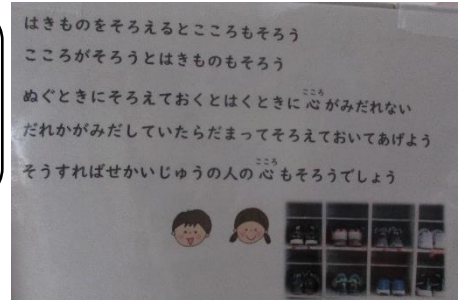 はきものをそろえるとこころもそろう
こころがそろうとはきものもそろう
ぬぐときにそろえておくとはくときに心がみだれない
だれかがみだしていたらだまってそろえておいてあげよう
そうすればせかいじゅうの人の心もそろうでしょう